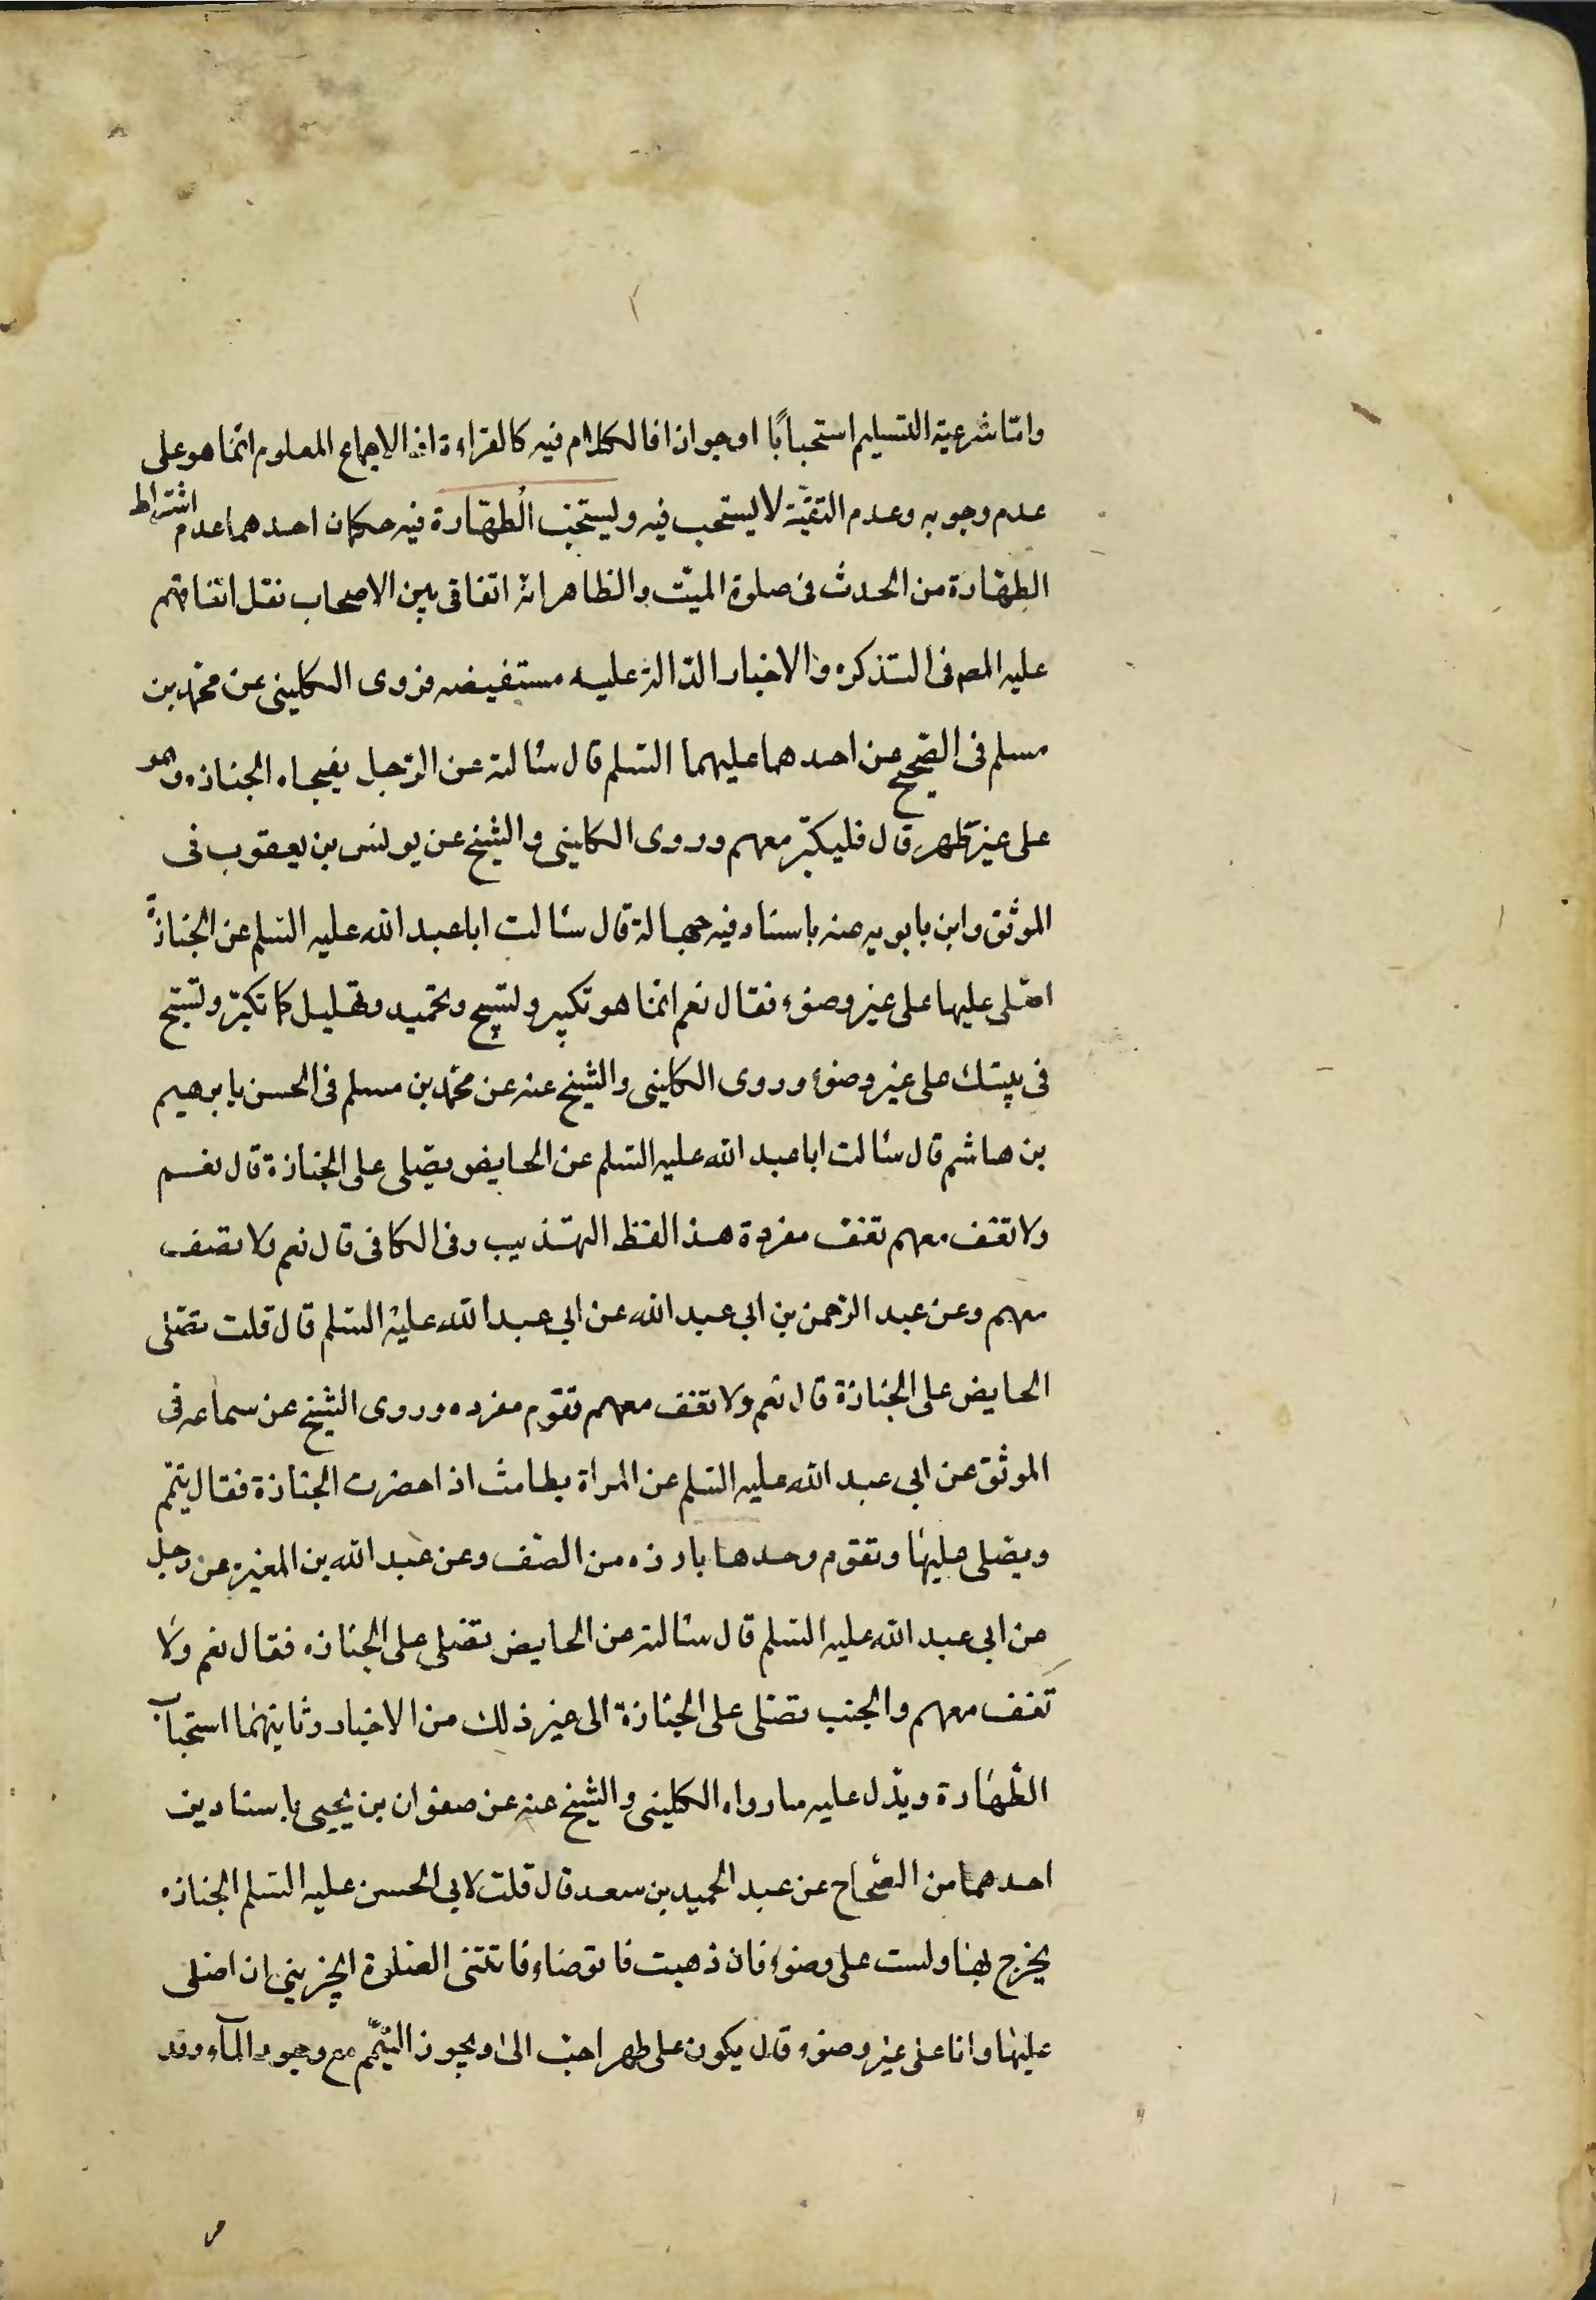 وامّا شرعية التسليم استحبابًا او جوازا فالكلام فيه كالقراءة اذ الاجماع المعلوم انّما هو على
عدم وجوبه وعدم التقيّة لا يستحب فيه ويستحبّ الطهّارة فيه حكمان احدهما عدم اشتراط
الطهّارة من الحدث فى صلوة الميّت والظاهر انّه اتفاقى بين الاصحاب نقل اتفاقهم
عليه المص فى التذكره والاخبار الدّالة عليه مستفيضه فروى الكلينى عن محمّد بن
مسلم فى الصّحيح عن احدهما عليهما السّلم قال سئالته عن الرّجل يفجاه الجنازه وهو
على غير طهر قال فليكبّر معهم وروى الكلينى والشيخ عن يونس بن يعقوب فى
الموثق وابن بابويه عنه باسناد فيه جهالة قال سئالت ابا عبد الله عليه السّلم عن الجنازة
اصلّى عليها على غير وضوء فقال نعم انّما هو تكبير وتسبيح وتحميد وتهليل كما تكبّر وتسبّح
فى بيتك على غير وضوء وروى الكلينى والشيخ عنه عن محمّد بن مسلم فى الحسن بابرهيم
بن هاشم قال سئالت ابا عبد الله عليه السّلم عن الحايض يصّلى على الجنازة قال نعم
ولا تقف معهم تقف مفردة هذا لفظ التهّذيب وفى الكافى قال نعم ولا تقف
معهم وعن عبد الرّحمن بن ابى عبد الله عن ابى عبد الله عليه السّلم قال قلت تصّلى
الحايض على الجنازة قال نعم ولا تقف معهم تقوم مفرده وروى الشيخ عن سماعه فى
الموثق عن ابى عبد الله عليه السّلم عن المراة بطامث اذا حضرت الجنازة فقال يتمّم
ويصّلى عليها وتقوم وحدها بارزه من الصّف وعن عبد الله بن المغيره عن رجل
عن ابى عبد الله عليه السّلم قال سئالته عن الحايض تصّلى على الجنازه فقال نعم ولا
تقف معهم والجنب تصّلى على الجنازة الى غير ذلك من الاخبار وثانيهما استحباب
الطّهارة ويدّل عليه ما رواه الكلينى والشيخ عنه عن صفوان بن يحيى باسنادين
احدهما من الصّحاح عن عبد الحميد بن سعد قال قلت لابى الحسن عليه السّلم الجنازه
يخرج بها ولست على وضوء فان ذهبت فاتوضاء فاتتنى الصّلوة ايجزينى ان اصلى
عليها وانا على غير وضوء قال يكون على طهر احبّ الىّ ويجوز التيّمم مع وجود المآء وقد